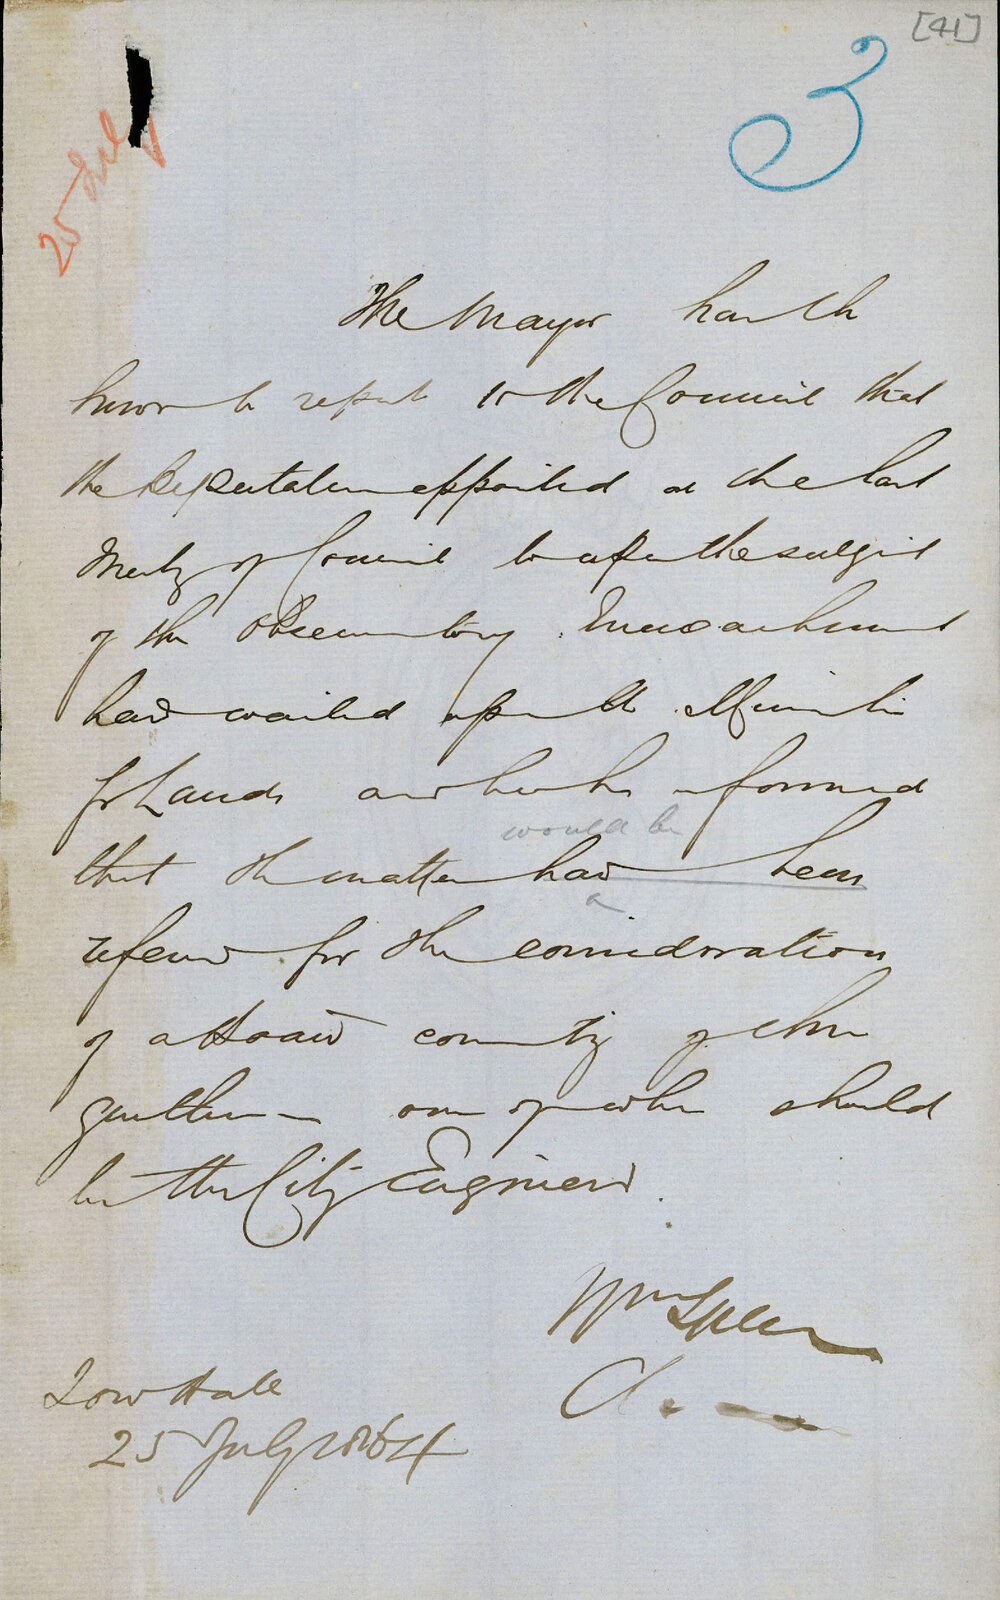 [41]
3
25 July
The Mayor has the
honor to report to the Council that
the Deputation appointed at the last
Meeting of Council to the subject
of the Observatory Encroachment
had waited upon the Minister
for Lands and had been informed
would be
that the matter had been
referred for the consideration
of a Board consisting of three
gentlemen one of whom should
be the City Engineer.
Wm Speer
Town Hall
25 July 1864